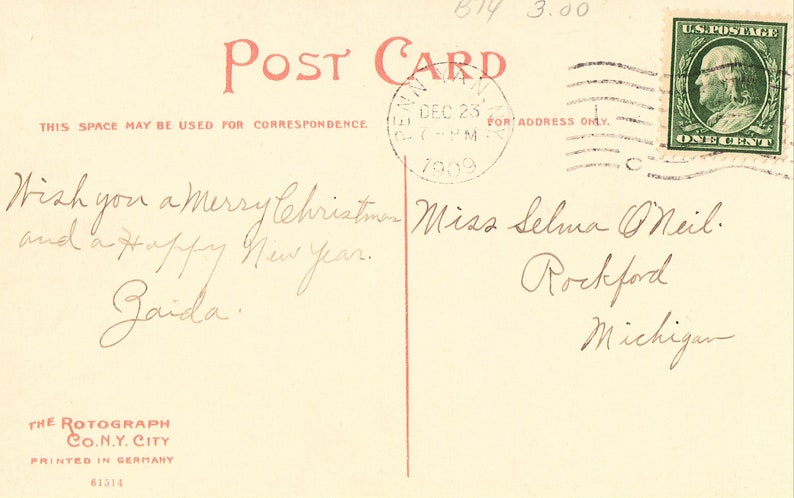 B14 3.00
POST CARD
U.S. POSTAGE
ONE CENT
PENN YAN, N.Y.
DEC 23
PM
1909
THIS SPACE MAY BE USED FOR CORRESPONDENCE
FOR ADDRESS ONLY.
Wish you a Merry Christmas
and a Happy New Year.
Zaida.
Miss Selma O'Neil.
Rockford
Michigan
THE ROTOGRAPH
CO. N.Y. CITY
PRINTED IN GERMANY
61514